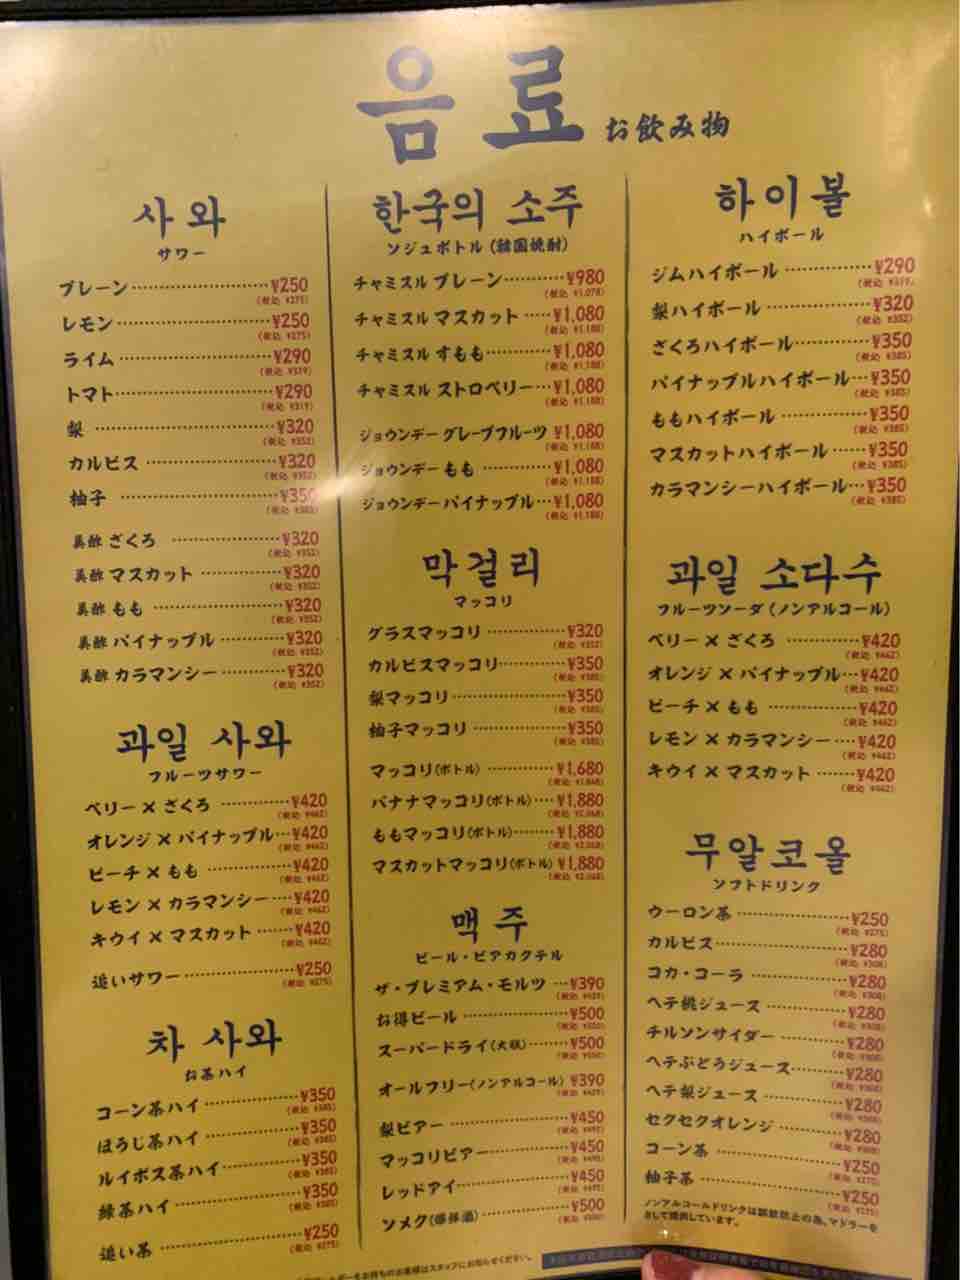 음료 お飲み物
사와
サワー
プレーン ¥250
(税込 ¥275)
レモン ¥250
(税込 ¥275)
ライム ¥290
(税込 ¥319)
トマト ¥290
(税込 ¥319)
梨 ¥320
(税込 ¥352)
カルピス ¥320
(税込 ¥352)
柚子 ¥350
(税込 ¥385)
美酢 ざくろ ¥320
(税込 ¥352)
美酢 マスカット ¥320
(税込 ¥352)
美酢 もも ¥320
(税込 ¥352)
美酢 パイナップル ¥320
(税込 ¥352)
美酢 カラマンシー ¥320
(税込 ¥352)
과일 사와
フルーツサワー
ベリー×ざくろ ¥420
(税込 ¥462)
オレンジ×パイナップル ¥420
(税込 ¥462)
ピーチ×もも ¥420
(税込 ¥462)
レモン×カラマンシー ¥420
(税込 ¥462)
キウイ×マスカット ¥420
(税込 ¥462)
追いサワー ¥250
(税込 ¥275)
차 사와
お茶ハイ
コーン茶ハイ ¥350
(税込 ¥385)
ほうじ茶ハイ ¥350
(税込 ¥385)
ルイボス茶ハイ ¥350
(税込 ¥385)
緑茶ハイ ¥350
(税込 ¥385)
追い茶 ¥250
(税込 ¥275)
한국의 소주
ソジュボトル(韓国焼酎)
チャミスル プレーン ¥980
(税込 ¥1,078)
チャミスル マスカット ¥1,080
(税込 ¥1,188)
チャミスル すもも ¥1,080
(税込 ¥1,188)
チャミスル ストロベリー ¥1,080
(税込 ¥1,188)
ジョウンデー グレープフルーツ ¥1,080
(税込 ¥1,188)
ジョウンデー もも ¥1,080
(税込 ¥1,188)
ジョウンデー パイナップル ¥1,080
(税込 ¥1,188)
막걸리
マッコリ
グラスマッコリ ¥320
(税込 ¥352)
カルピスマッコリ ¥350
(税込 ¥385)
梨マッコリ ¥350
(税込 ¥385)
柚子マッコリ ¥350
(税込 ¥385)
マッコリ(ボトル) ¥1,680
(税込 ¥1,848)
バナナマッコリ(ボトル) ¥1,880
(税込 ¥2,068)
ももマッコリ(ボトル) ¥1,880
(税込 ¥2,068)
マスカットマッコリ(ボトル) ¥1,880
(税込 ¥2,068)
맥주
ビール・ビアカクテル
ザ・プレミアム・モルツ ¥390
(税込 ¥429)
お得ビール ¥500
(税込 ¥550)
スーパードライ(大瓶) ¥500
(税込 ¥550)
オールフリー(ノンアルコール) ¥390
(税込 ¥429)
梨ビアー ¥450
(税込 ¥495)
マッコリビアー ¥450
(税込 ¥495)
レッドアイ ¥450
(税込 ¥495)
ソメク(爆弾酒) ¥500
(税込 ¥550)
하이볼
ハイボール
ジムハイボール ¥290
(税込 ¥319)
梨ハイボール ¥320
(税込 ¥352)
ざくろハイボール ¥350
(税込 ¥385)
パイナップルハイボール ¥350
(税込 ¥385)
ももハイボール ¥350
(税込 ¥385)
マスカットハイボール ¥350
(税込 ¥385)
カラマンシーハイボール ¥350
(税込 ¥385)
과일 소다수
フルーツソーダ(ノンアルコール)
ベリー×ざくろ ¥420
(税込 ¥462)
オレンジ×パイナップル ¥420
(税込 ¥462)
ピーチ×もも ¥420
(税込 ¥462)
レモン×カラマンシー ¥420
(税込 ¥462)
キウイ×マスカット ¥420
(税込 ¥462)
무알코올
ソフトドリンク
ウーロン茶 ¥250
(税込 ¥275)
カルピス ¥280
(税込 ¥308)
コカ・コーラ ¥280
(税込 ¥308)
ヘテ桃ジュース ¥280
(税込 ¥308)
チルソンサイダー ¥280
(税込 ¥308)
ヘテぶどうジュース ¥280
(税込 ¥308)
ヘテ梨ジュース ¥280
(税込 ¥308)
セクセクオレンジ ¥280
(税込 ¥308)
コーン茶 ¥250
(税込 ¥275)
柚子茶 ¥250
(税込 ¥275)
ノンアルコールドリンクは誤飲防止の為、マドラーを
さして提供しています。
をお持ちのお客様はスタッフにお知らせください。